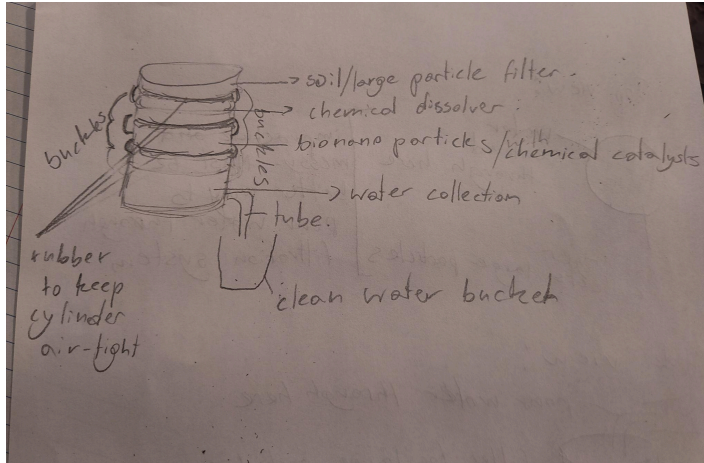 soil/large particle filter.
chemical dissolver.
bionano particles/chemical catalysts
buckles
buckles
water collection
tube.
clean water bucket
rubber
to keep
cylinder
air-tight